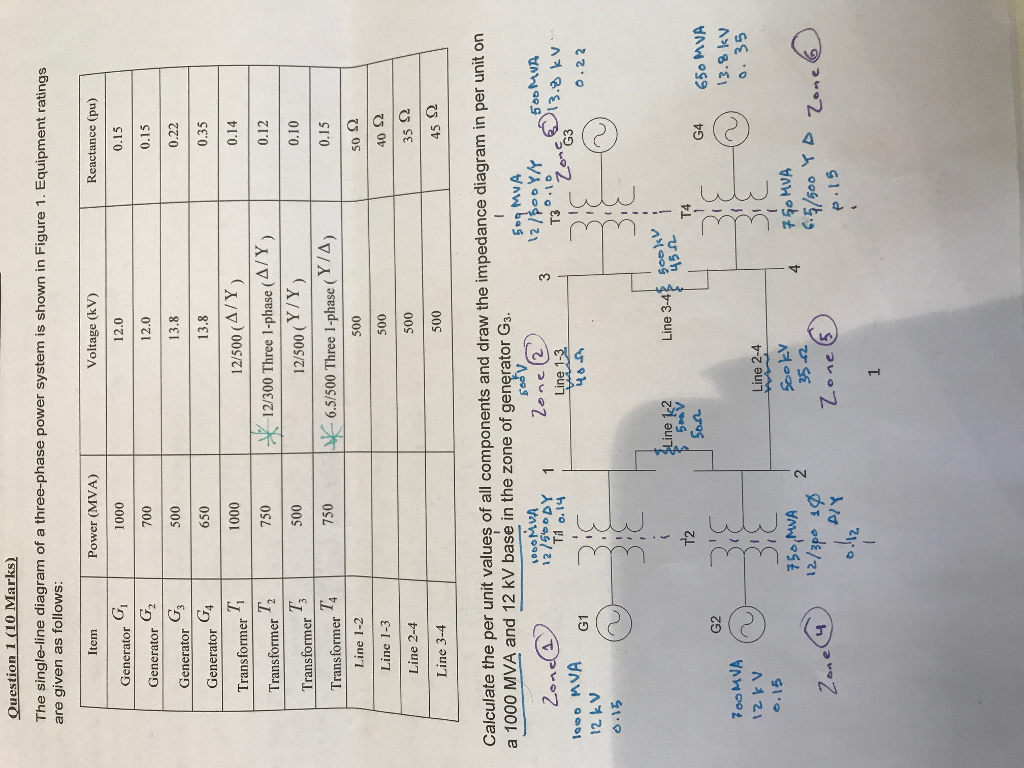 Question 1 (10 Marks)
The single-line diagram of a three-phase power system is shown in Figure 1. Equipment ratings
are given as follows:
Item Power (MVA) Voltage (kV) Reactance (pu)
Generator G1 1000 12.0 0.15
Generator G2 700 12.0 0.15
Generator G3 500 13.8 0.22
Generator G4 650 13.8 0.35
Transformer T1 1000 12/500 ( Δ/Y ) 0.14
Transformer T2 750 12/300 Three 1-phase ( Δ/Y ) 0.12
Transformer T3 500 12/500 ( Y/Y ) 0.10
Transformer T4 750 6.5/500 Three 1-phase ( Y/Δ ) 0.15
Line 1-2 500 50 Ω
Line 1-3 500 40 Ω
Line 2-4 500 35 Ω
Line 3-4 500 45 Ω
Calculate the per unit values of all components and draw the impedance diagram in per unit on
a 1000 MVA and 12 kV base in the zone of generator G3.
Zone 1
1000 MVA
12 kV
0.15
G1
1000MVA
12/500 ΔY
T1 0.14
1
Zone 2
500 kV
Line 1-3
40Ω
3
500 MVA
12/500 Y/Y
0.10
T3
Zone 3
G3
500MVA
13.8 kV
0.22
Line 1-2
500V
50Ω
Line 3-4
500kV
45Ω
700MVA
12 kV
0.15
G2
T2
750 MVA
12/300 1Ø
Δ/Y
0.12
2
Line 2-4
500kV
35Ω
4
T4
750MVA
6.5/500 Y Δ
0.15
G4
650 MVA
13.8 kV
0.35
Zone 4
Zone 5
Zone 6
1